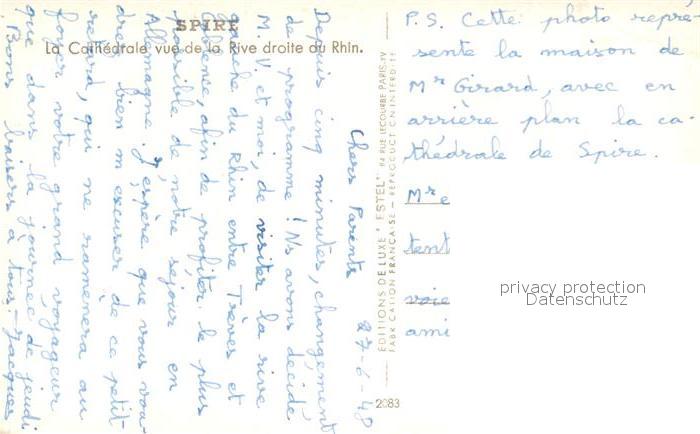 SPIRE
La Cathédrale vue de la Rive droite du Rhin.
27-6-48
Chers Parents
Depuis cinq minutes, changement
de programme ! Ns avons décidé
M. V. et moi, de visiter la rive
gauche du Rhin entre Trèves et
Coblence, afin de profiter le plus
possible de notre séjour en
Allemagne. J'espère que vous vou-
drez bien m'excuser de ce petit
retard, qui ne ramènera au
foyer votre grand voyageur
que dans la journée de jeudi
Bons baisers à tous. Jacques
EDITIONS DE LUXE "ESTEL" 84 RUE LECOURBE PARIS-XV
FABRICATION FRANÇAISE - REPRODUCTION INTERDITE
2083
P.S. Cette photo repré
sente la maison de
Mr Girard, avec en
arrière plan la ca-
thédrale de Spire.
Mre
tent
voie
ami
privacy protection
Datenschutz